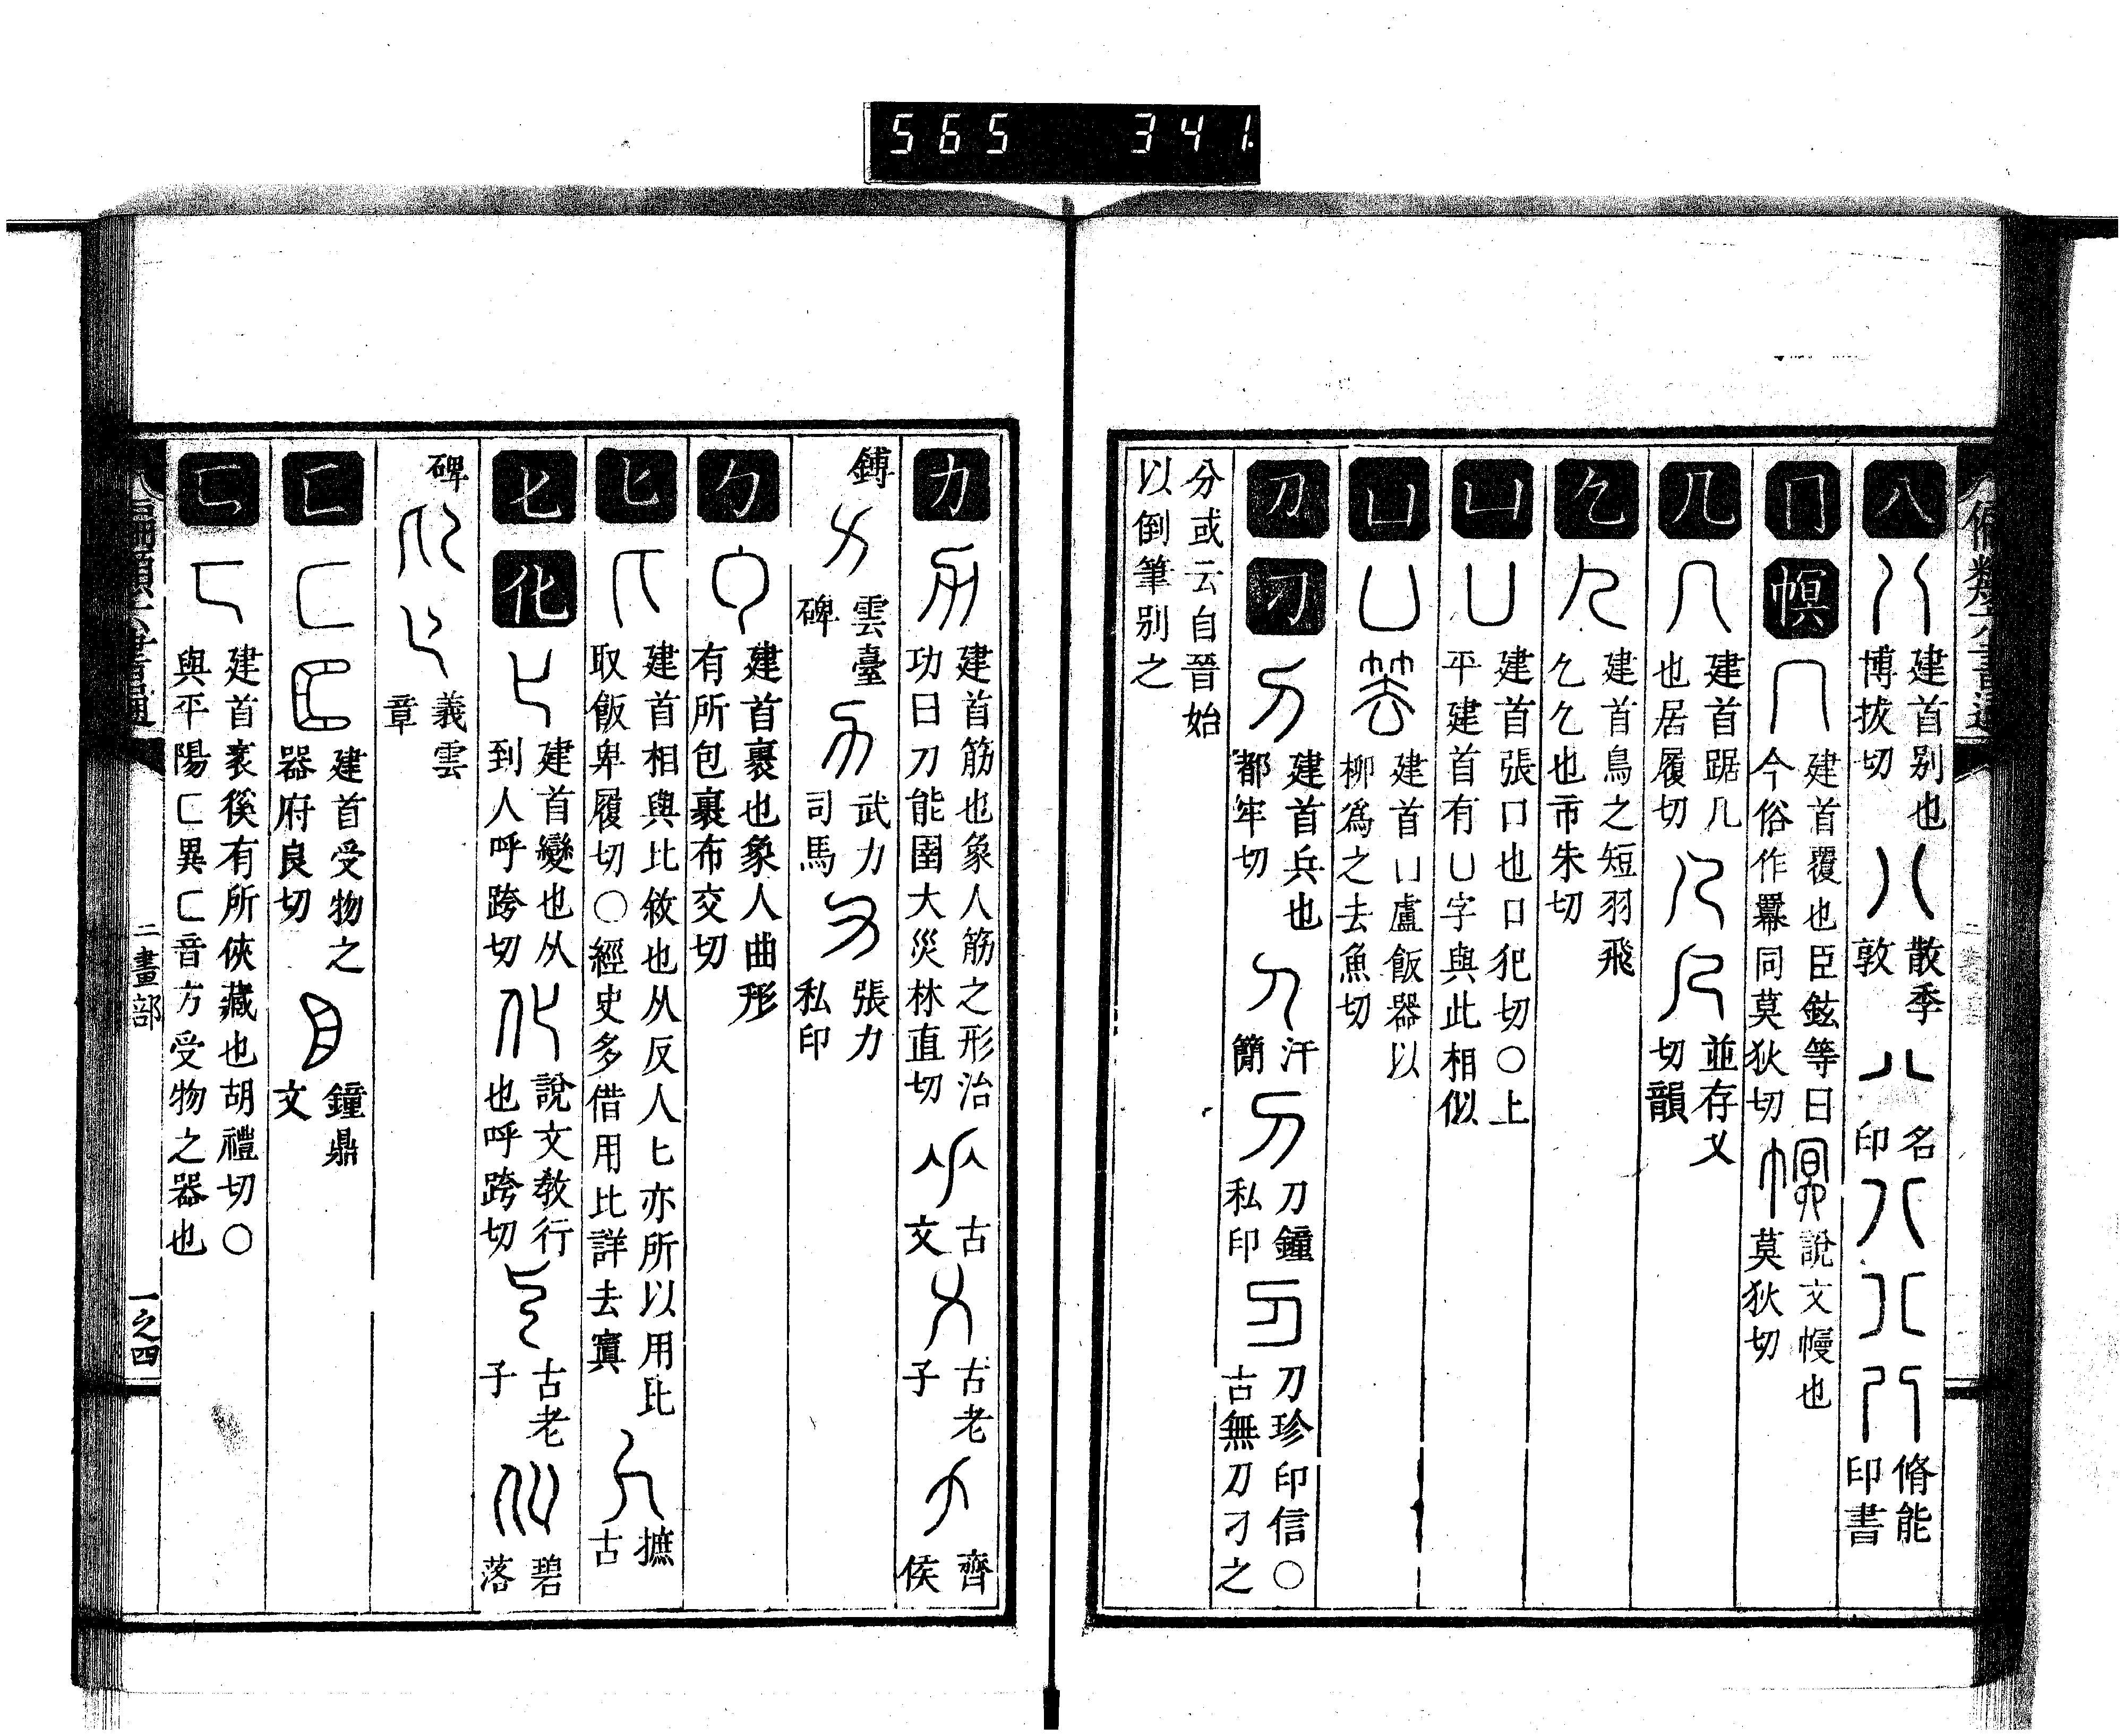 565 341.
八 建首别也博拔切 散季敦 名印 脩能印書
冂 幎 建首覆也臣鉉等曰今俗作羃同莫狄切 說文幔也莫狄切
几 建首踞几也居履切 並存乂切韻
乞 建首鳥之短羽飛乞乞也市朱切
凵 建首張口也口犯切〇上平建首有凵字與此相似
凵 建首凵盧飯器以柳爲之去魚切
刀 刁 建首兵也都牢切 汗簡 刀鐘私印 刀珍印信〇古無刀刁之
分或云自晉始以倒筆别之
力 建首筋也象人筋之形治功曰力能圉大災林直切 古文 古老子 齊侯
鎛 雲臺碑 武力司馬 張力私印
勹 建首裹也象人曲形有所包裹布交切
匕 建首相與比敘也从反人匕亦所以用比取飯卑履切〇經史多借用比詳去寘 摭古
七 化 建首變也从到人呼跨切 說文教行也呼跨切 古老子 碧落
碑 義雲章
匚 建首受物之器府良切 鐘鼎文
匸 建首衺徯有所俠藏也胡禮切〇與平陽匚異匚音方受物之器也
二畫部
一之四